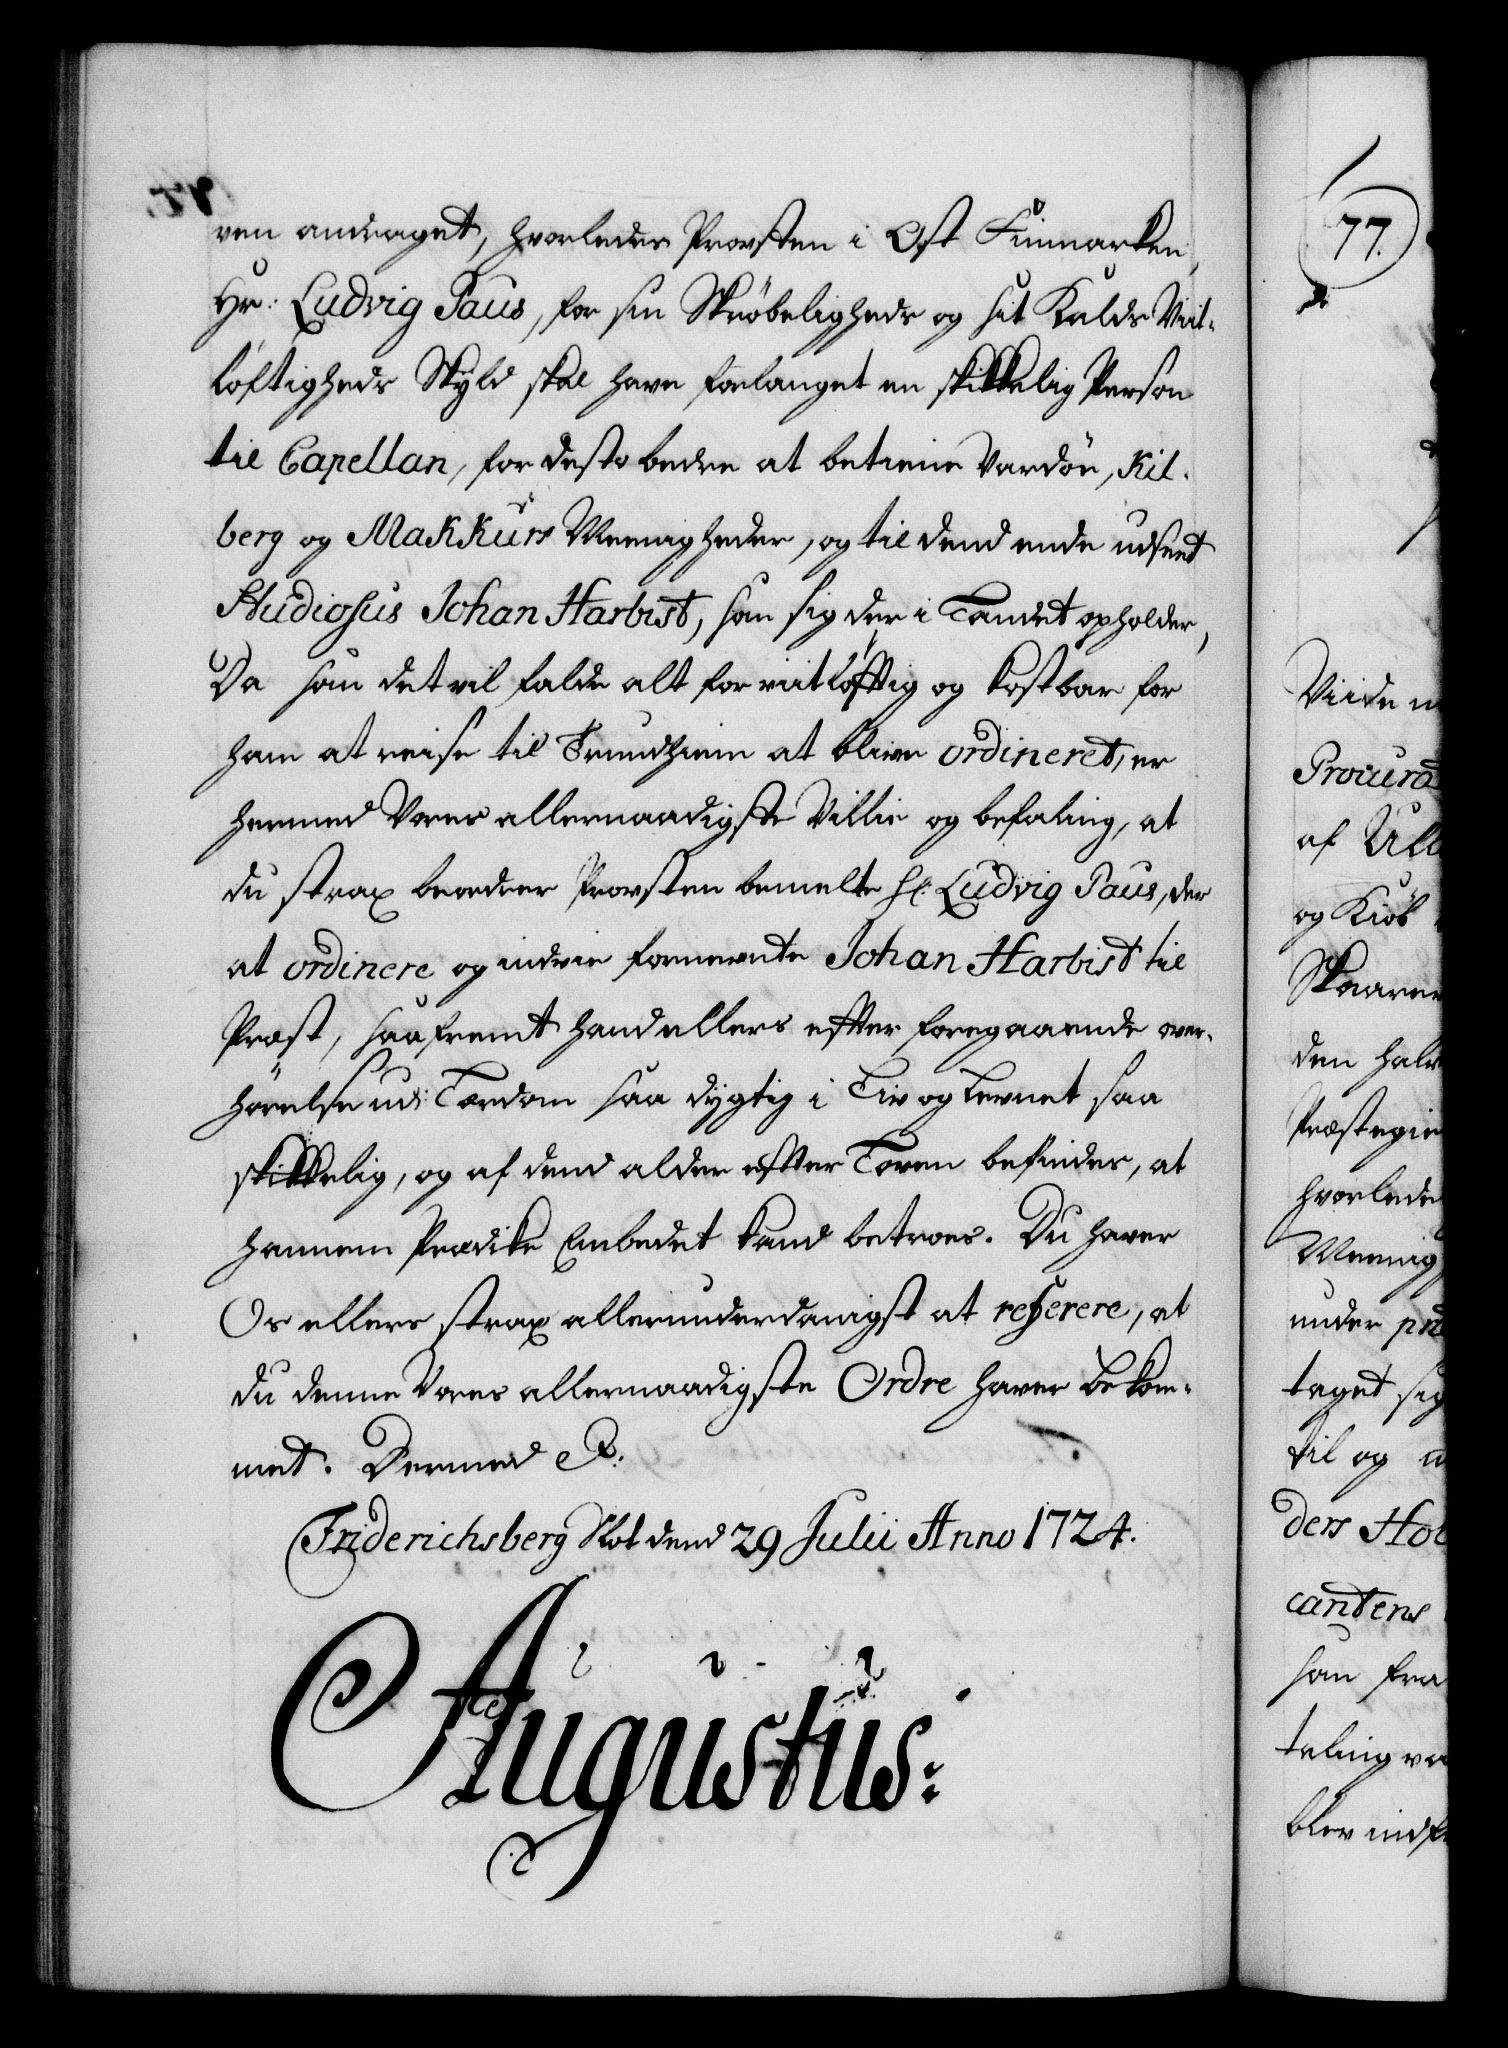 ven andraget, hvorledes Provsten i Ost Finmarken,
Hr: Ludvig Paus, for sin Skröbeligheds og sit Kalds Viit-
löftigheds Skyld skal have forlanget en skikkelig Person
til Capellan, for desto bedre at betiene Vardöe, Kil-
berg og Makkurs Meenigheder, og til dend ende udseet
Studiosus Johan Harbist, som sig der i Landet opholder,
Da som det vil falde alt for viitlöfftig og kostbar for
ham at reise til Trundhiem at blive ordineret, er
hermed Vores allernaadigste Villie og befaling, at
du strax beordrer Provsten bemelte Hr: Ludvig Paus, der
at ordinere og indvie fornevnte Johan Harbist til
Præst, saafremt hand ellers effter foregaaende over-
hörelse udi Lærdom saa dygtig i Liv og Levnet saa
skikkelig, og af dend alder effter Loven befindes, at
hannem Prædike Embedet kand betroes. Du haver
Os ellers strax allerunderdanigst at referere, at
du denne Vores allernaadigste Ordre haver bekom-
met. Dermed &:
Friderichsberg Slot dend 29 Julii Anno 1724.
Augustus:
77.
Viide
Procura
af Ull
og Kiöb
Skaarer
den hal
Præstegie
hvorlede
Meenig
under
taget sig
til og
ders Hol
cantens
som fra
teling va
blev indf